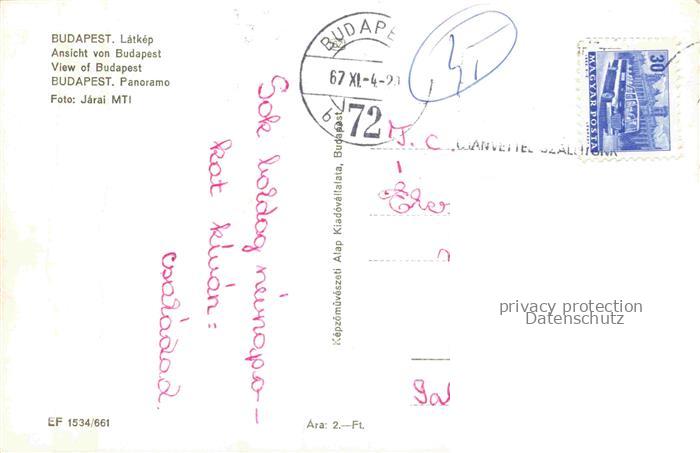 BUDAPEST. Látkép
Ansicht von Budapest
View of Budapest
BUDAPEST. Panoramo
Foto: Járai MTI
Sok boldog névnapo-
kat kíván:
családod.
EF 1534/661
Ára: 2.—Ft.
Képzőművészeti Alap Kiadóvállalata, Budapest
BUDAPE
67 XI.-4-20
72
30
MAGYAR POSTA
privacy protection
Datenschutz